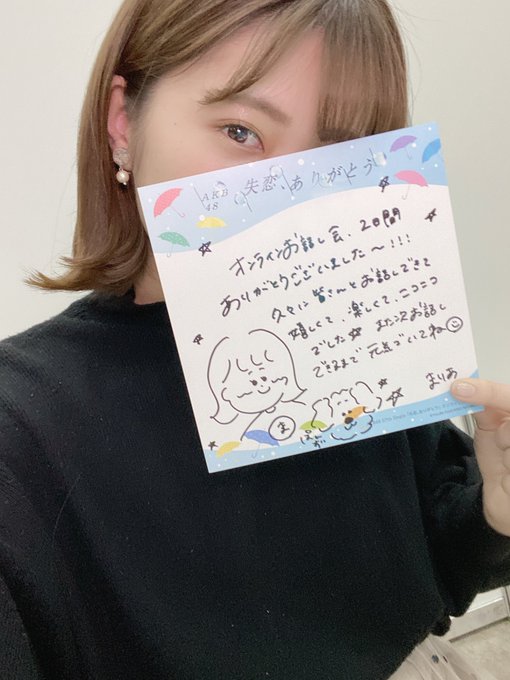 AKB
48
失恋、ありがとう
オンラインお話し会 2日間
ありがとうございました〜!!!
久々に皆さんとお話しできて
嬉しくて、楽しくて、ニコニコ
でした☆ また次お話し
できるまで 元気でいてね
まりあ
ま